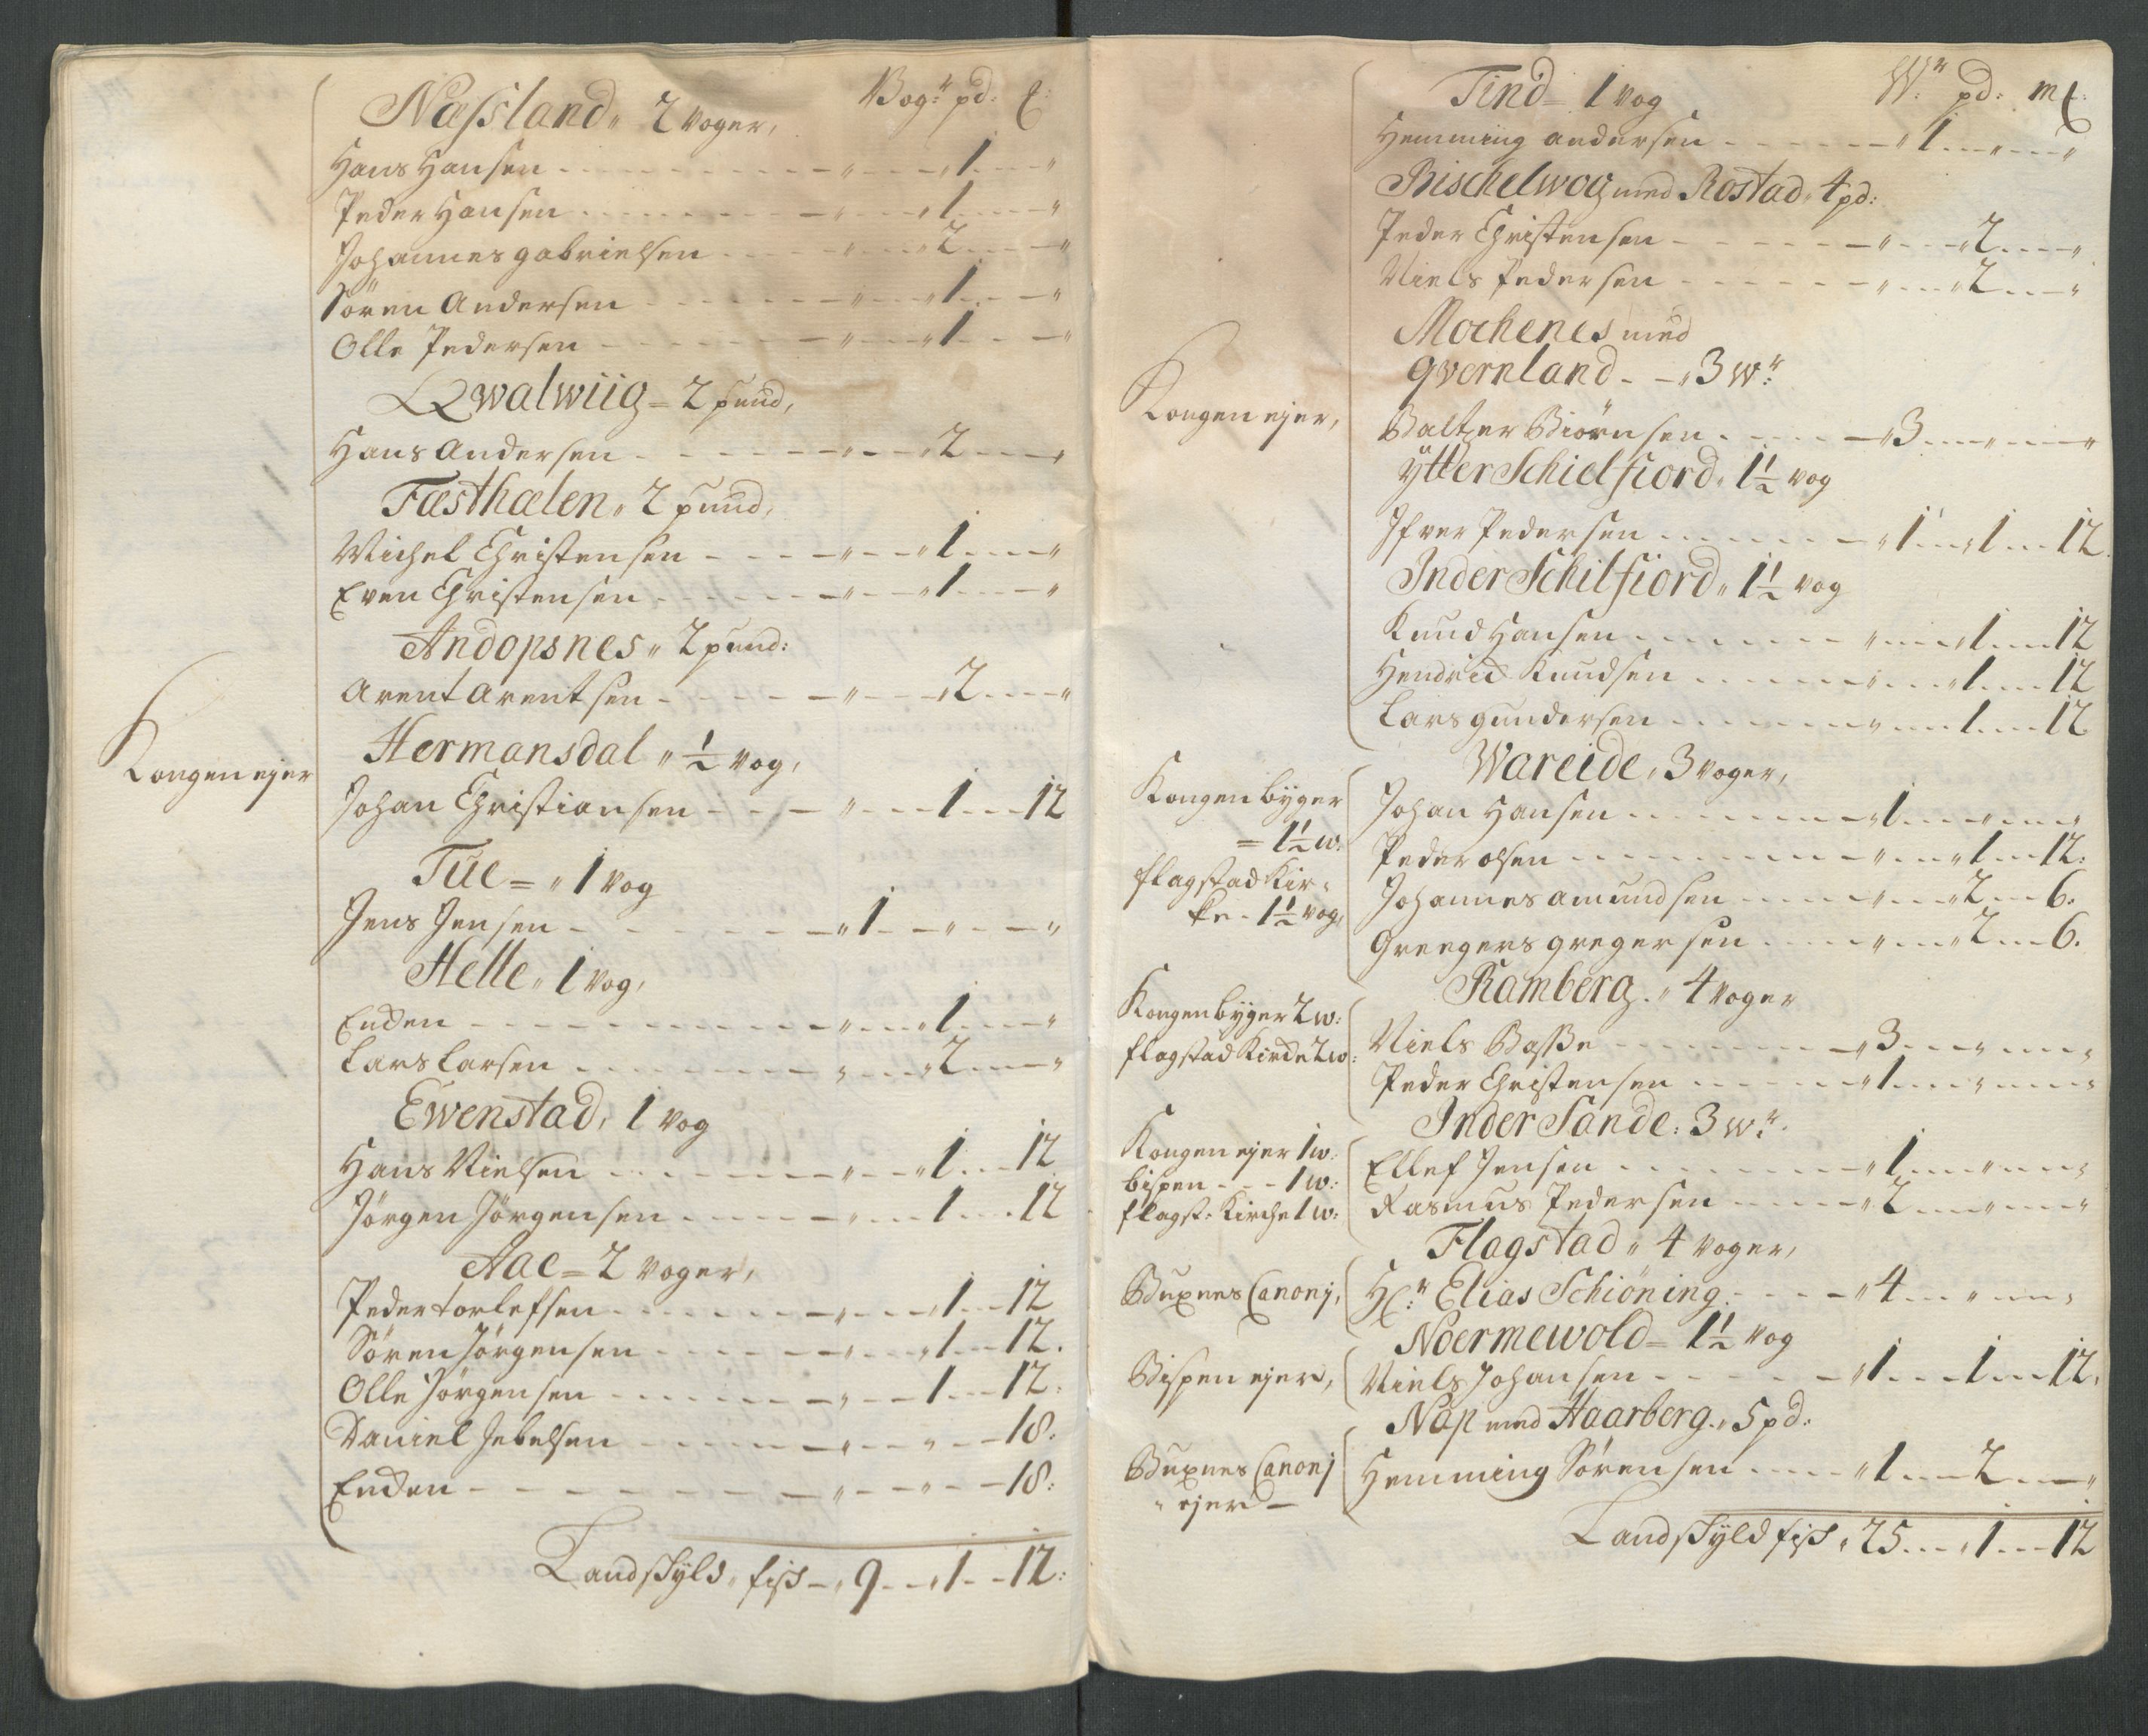 Næssland„ 2 voger, Vog:r pd: ℔:
Hans Hansen - - - „ - - „1 - - „
Peder Hansen - - - „ - - „1 - - „
Johannes gabrielsen - - - „ - - „2 - - „
Sören Andersen - - - „ - - „1 - - „
Olle Pedersen - - - „ - - „1 - - „
Qwalwiig = 2 pund,
Hans Andersen - - - „ - - „2 - - „
Fæsthælen„ 2 pund,
Michel Christensen - - - „ - - „1 - - „
Even Christensen - - - „ - - „1 - - „
Andopsnes„ 2 pund:
Arent Arentsen - - - „ - - „2 - - „
Kongen ejer
Hermansdal„ ½ vog,
Johan Christiansen - - - „ - - 1 - - 12
Tue = „ 1 vog
Jens Jensen - - - „1 - - „ - - „
Helle„ 1 vog,
Enchen - - - „ - - „1 - - „
Lars Larsen - - - „ - - „2 - - „
Ewenstad, 1 vog
Hans Nielsen - - - „ - - „1 - - 12
Jörgen Jörgensen - - - „ - - 1 - - 12
Aae = 2 voger,
Peder torlefsen - - - „ - - „1 - - 12
Sören Jörgensen - - - „ - - „1 - - 12.
Olle Jörgensen - - - „ - - 1 - - 12:
Daniel Jebelsen - - - „ - - „ - - 18.
Enchen - - - „ - - „ - - 18:
Landskyld„ fisk - „9 - - „1 - - 12:
Tind = 1 vog W:r pd: m℔:
Hemming andersen - - - „1 - - „ - - „
Bischelwog med Rostad„ 4 pd:
Peder Christensen - - - „ - - „2 - - „
Niels Pedersen - - - „ - - „2 - - „
Mochenes med
qvernland - - „3 w:r
Kongen ejer,
Baltzer Biörnsen - - - „3 - - „ - - „
ÿtter Schielfiord„ 1½ vog
Ifver Pedersen - - - „1 - - „1 - - 12.
Inder Schilfiord„ 1½ vog
Knud Hansen - - - „ - - „1 - - 12
Hendrich Knudsen - - - „ - - „1 - - 12
Lars gundersen - - - „ - - 1 - - 12
Wareide, 3 voger,
Kongen bÿger Johan Hansen - - - „1 - - „ - - „
= 1½ w: Peder olsen - - - „ - - „1 - - 12:
flagstad Kir= Johannes amundsen - - - „ - - „2 - - 6.
ke - 1½ vog, Greegers gregersen - - - „ - - „2 - - 6.
Ramberg.„ 4 voger
Kongen bÿger 2 w:
flagstad Kirche 2 w: Niels Basse - - - „3 - - „ - - „
Peder Christensen - - - „1 - - „ - - „
Inder Sande: 3 w:r
Kongen ejer 1 w: Ellef Jensen - - - „1 - - „ - - „
bispen - - - 1 w: Rasmus Pedersen - - - „2 - - „ - - „
flagst: Kirche 1 w:
Flagstad„ 4 voger,
Buxnes Canonj, H:r Elias Schiöning - - - „4 - - „ - - „
Noermewold = 1½ vog
Bispen ejer, Niels Johansen - - - „1 - - 1 - - 12.
Nap med Haarberg.„ 5 pd:
Buxnes Canonj Hemming Sörensen - - - „1 - - 2 - - „
„ ejer -
Landskÿld fisk„ 25 - - „1 - - 12